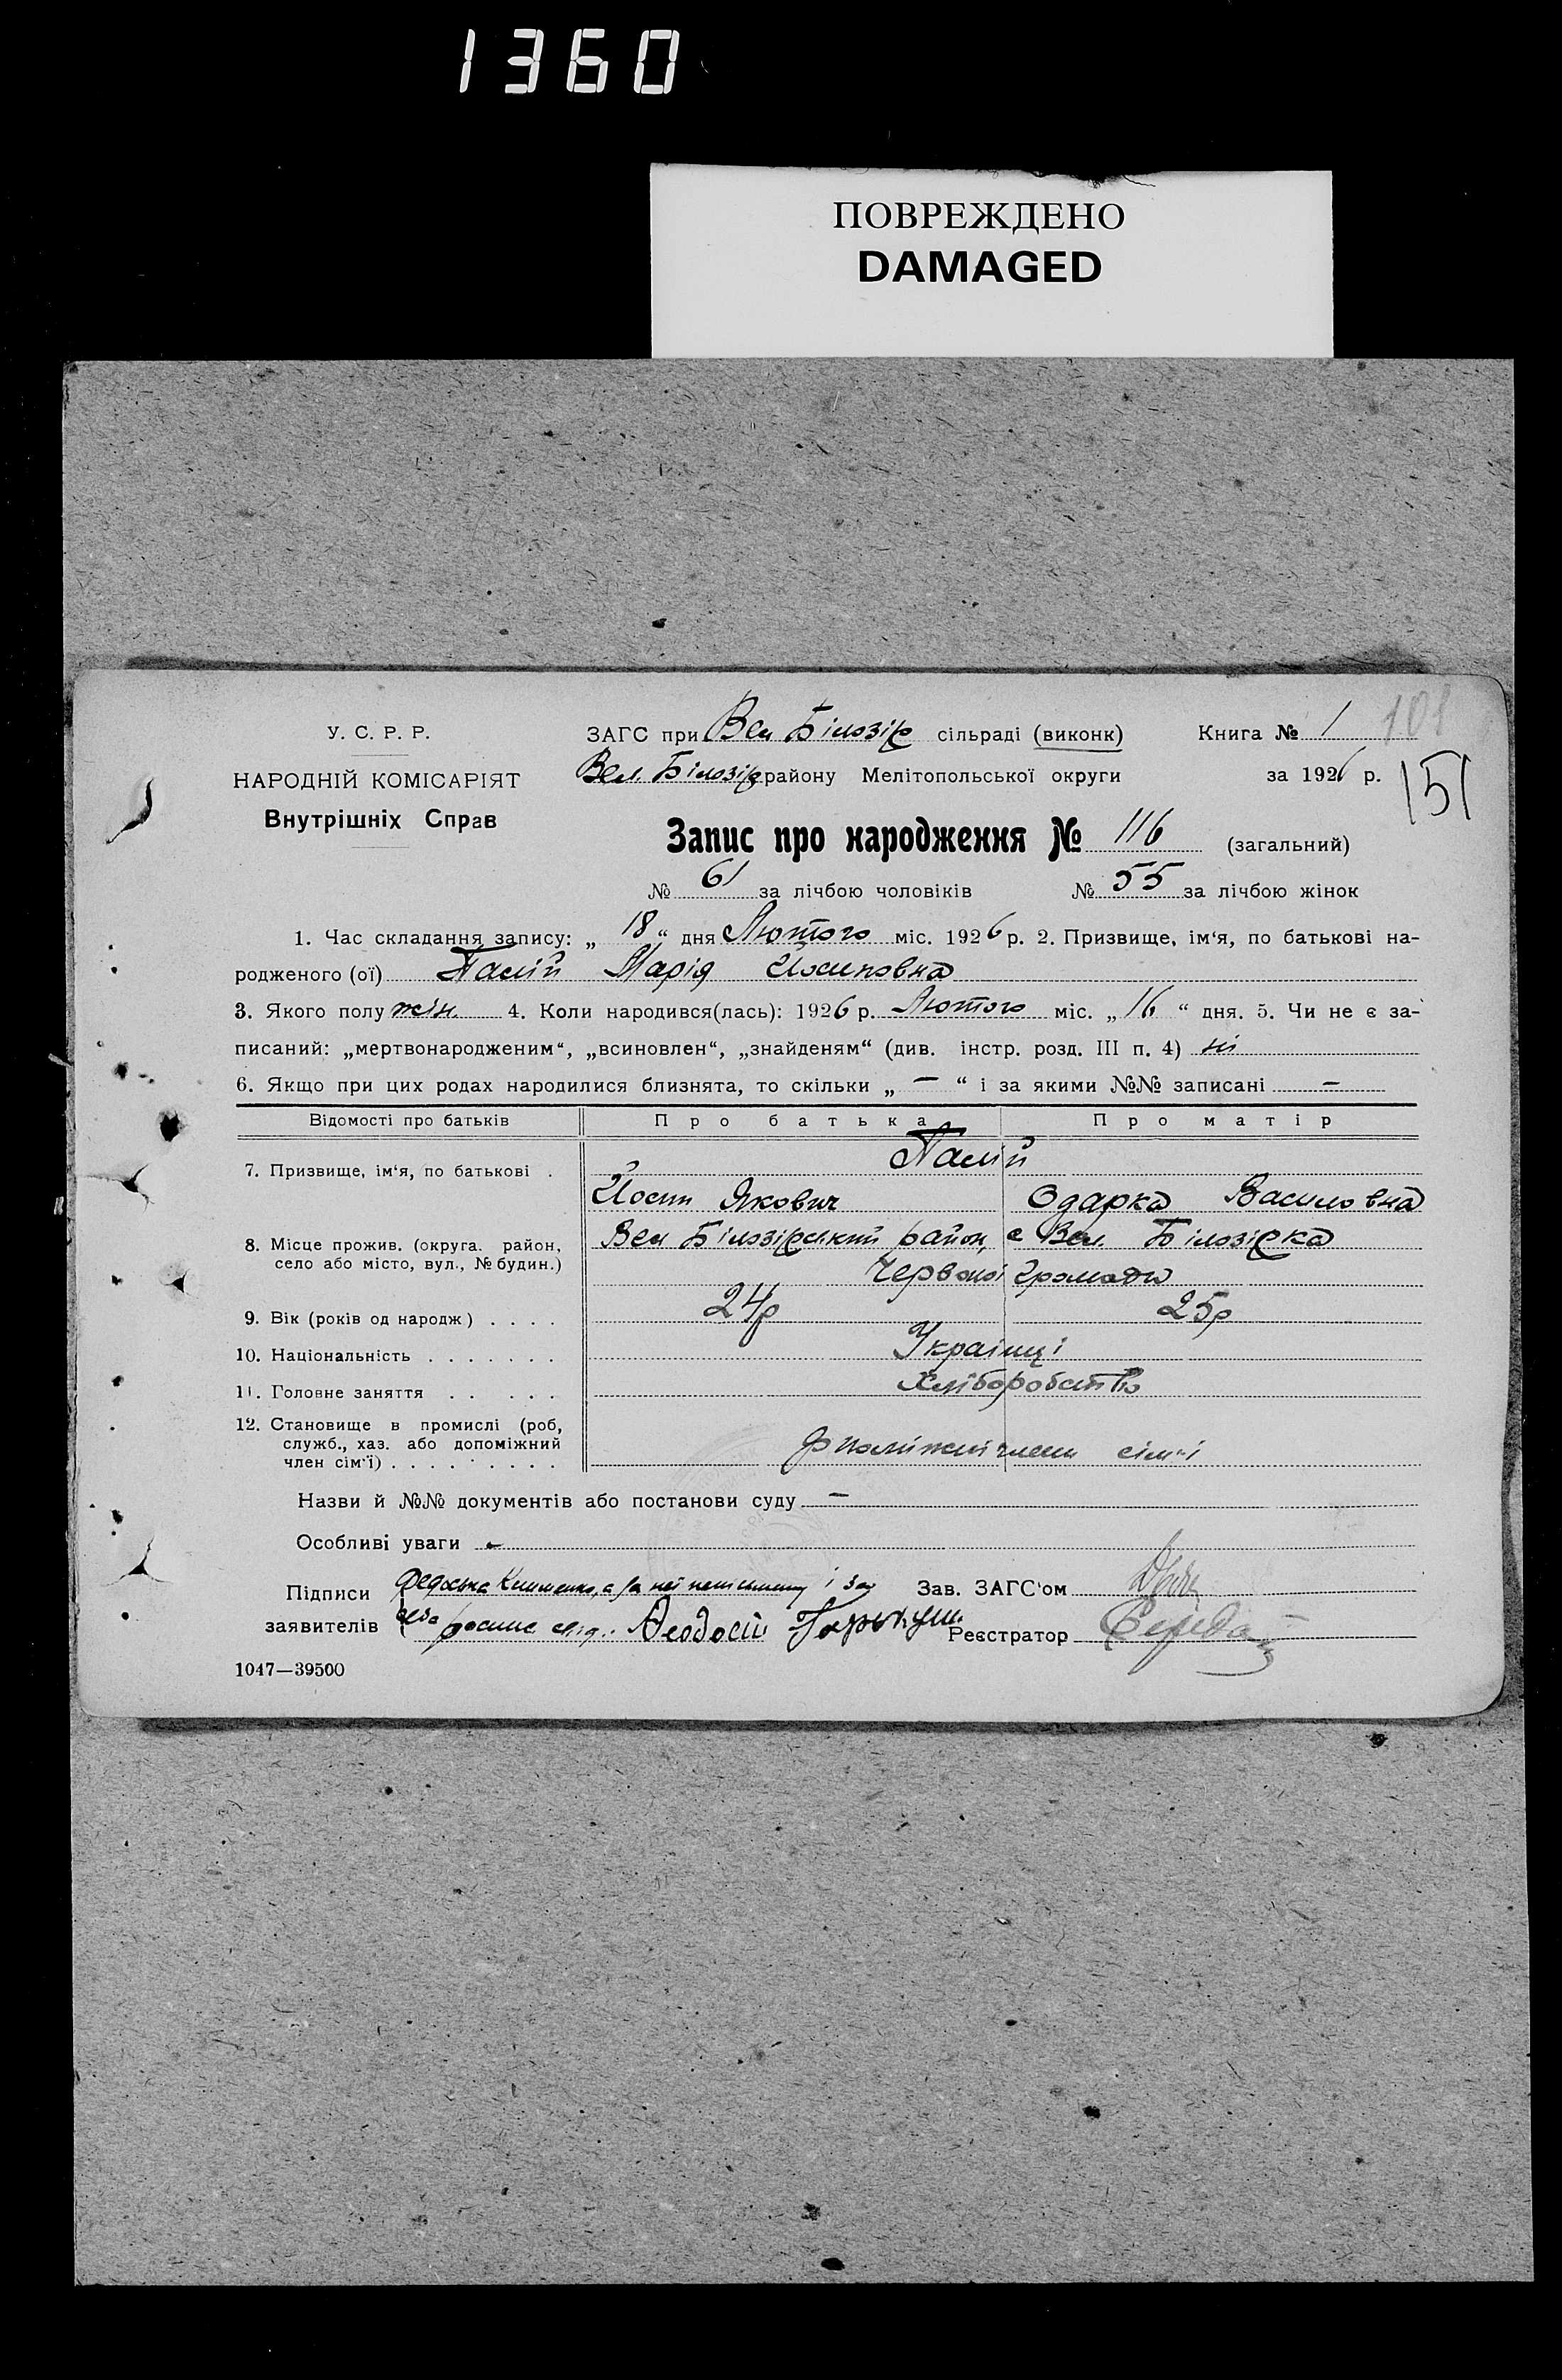 1360
ПОВРЕЖДЕНО
DAMAGED
У. С. Р. Р.
НАРОДНІЙ КОМІСАРІЯТ
Внутрішніх Справ
ЗАГС при Вел Білозір сільраді (виконк)
Вел. Білозір району Мелітопольської округи
Книга № 1
101
за 1926 р.
151
Запис про народження № 116 (загальний)
№ 61 за лічбою чоловіків № 55 за лічбою жінок
1. Час складання запису: „ 18 “ дня Лютого міс. 1926 р. 2. Призвище, ім‘я, по батькові на-
родженого (ої) Палій Марія Йосиповна
3. Якого полу жін. 4. Коли народився(лась): 1926 р. Лютого міс. „ 16 “ дня. 5. Чи не є за-
писаний: „мертвонародженим“, „всиновлен“, „знайденям“ (див. інстр. розд. III п. 4) ні
6. Якщо при цих родах народилися близнята, то скільки „ — “ і за якими №№ записані —
Відомості про батьків Про батька Про матір
7. Призвище, ім‘я, по батькові . Палій
Йосип Якович Одарка Василовна
8. Місце прожив. (округа. район,
село або місто, вул., № будин.)
Вел Білозірський район, с Вел. Білозірка
Червоної Громади
9. Вік (років од народж) . . . . 24р 25р
10. Національність . . . . . . . Українці
11. Головне заняття . . . . . Хліборобство
12. Становище в промислі (роб,
служб., хаз. або допоміжний
член сім'ї) . . . . . . . . .
члени сім'ї
Назви й №№ документів або постанови суду —
Особливі уваги -
Підписи
заявителів
Федоська Клименко, а за неї неписьменну і за
себе росписс Феодосій
Зав. ЗАГС'ом
Реєстратор Середа
1047—39500